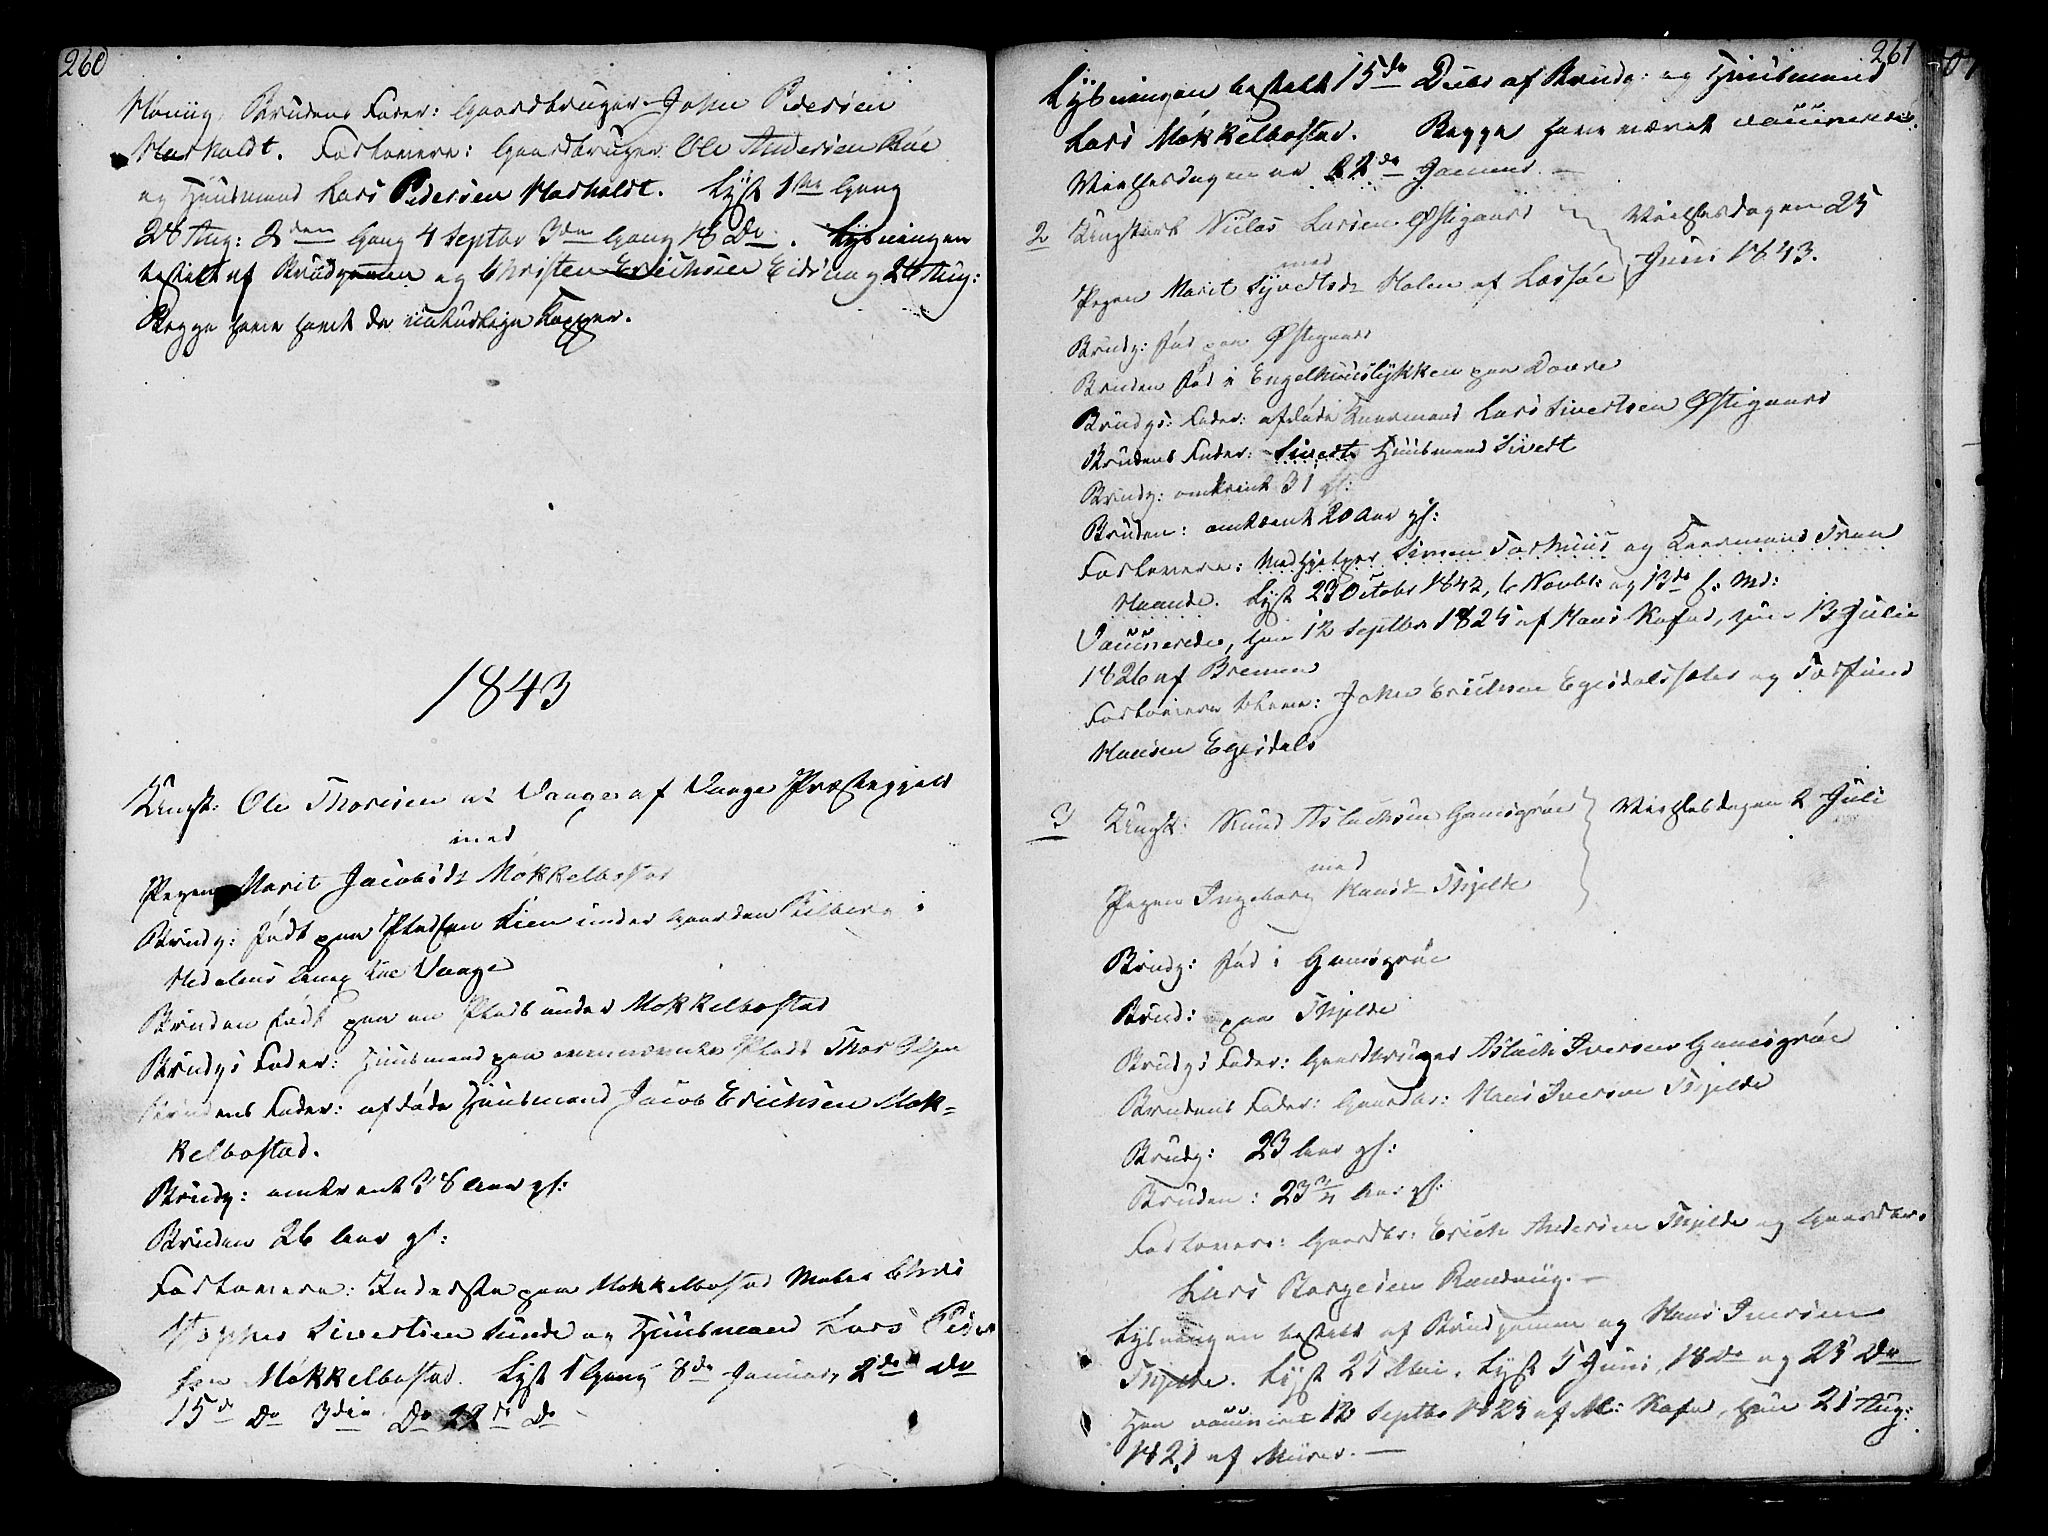 260
Brudens Fader: Gaardbruger John Pedersen
Harholdt. Forlovere: Gaardbruger Ole Andersen Bøe
og Huusmand Lars Pedersen Harholdt. Lyst 1ste Gang
28 Aug: 2den Gang 4 Septbr 3die Gang 18 Do. Lysningen
bestilt af Brudgommen og Christen Erichsen Eidsvaag 26 Aug:
Begge have havt de naturlige Kopper.
1843
Ungk: Ole Thoresen Vaage af Vaage Præstegjeld
med
Pigen Marit Jacobsdt Mokkelbostad
Brudg: født paa Pladsen Lien under Gaarden
Hedalens Vaage
Bruden født paa en Plads under Mokkelbostad
Brudgs Fader: Huusmand paa ovennævnte Plads Thor Olsen
Brudens Fader: afdøde Huusmand Jacob Erichsen Mok-
kelbostad.
Brudg: omtrent 38 Aar gl:
Bruden 26 Aar gl:
Forlovere: Inderste paa Mokkelbostad
Sivertsen Sunde og Huusmand Lars Peder
sen Mokkelbostad. Lyst 1 Gang 8de Januar, 2de Do
15de Do 3die Do 22de Do
261
Lysningen bestilt 15de Dcbr af Brudg: og Huusmand
Lars Mokkelbostad. Begge have været vaccinerede.
Vielsesdagen er 22de Januar. —
2 Ungkarl Niclas Larsen Østigaard Vielsesdagen 25
med Juni 1843.
Pigen Marit Syvertsdt Holen af Lessøe
Brudg: fød paa Østigaard
Bruden fød i Engelhuuslykken paa Dovre
Brudgs: Fader: afdøde Kaarmand Lars Sivertsen Østigaard
Brudens Fader: Sivert Huusmand Sivert
Brudg: omtrent 31 gl:
Bruden: omtrent 20 Aar gl:
Forlovere: Medhjelper Simen Torhuus og Kaarmand Iver
Haande. Lyst 23 Octobr 1842, 6 Novbr og 13de s. Md:
Vaccinerede, han 12 Septbr 1825 af Hans Kafod, hun 13 Julii
1826 af Bremer
Forlovere bleve: John Erichsen Egisdalssæter og Torfind
Hansen Egisdals
3 Ungk: Knud Aslachsen Gamsgrøe Vielsesdagen 2 Juli
med
Pigen Ingeborg Hansdt Thjelde
Brudg: fød i Gamsgrøe
Brud: paa Thjelde
Brudgs Fader: Gaardbruger Aslach Iversen Gamsgrøe
Brudens Fader: Gaardbr: Hans Iversen Thjelde
Brudg: 23 Aar gl:
Bruden: 23 3/4 Aar gl:
Forlovere: Gaardbr: Erich Andersen Thjelde og Gaardbr.
Lars Borgesen Randviig. —
Lysningen bestilt af Brudgommen og Hans Iversen
Thjelde. Lyst 25 Mai. Lyst 5 Juni, 18 Do og 25 Do
Han vaccineret 12 Septbr 1825 af M: Kafod, hun 21 Aug:
1821 af Müser. —